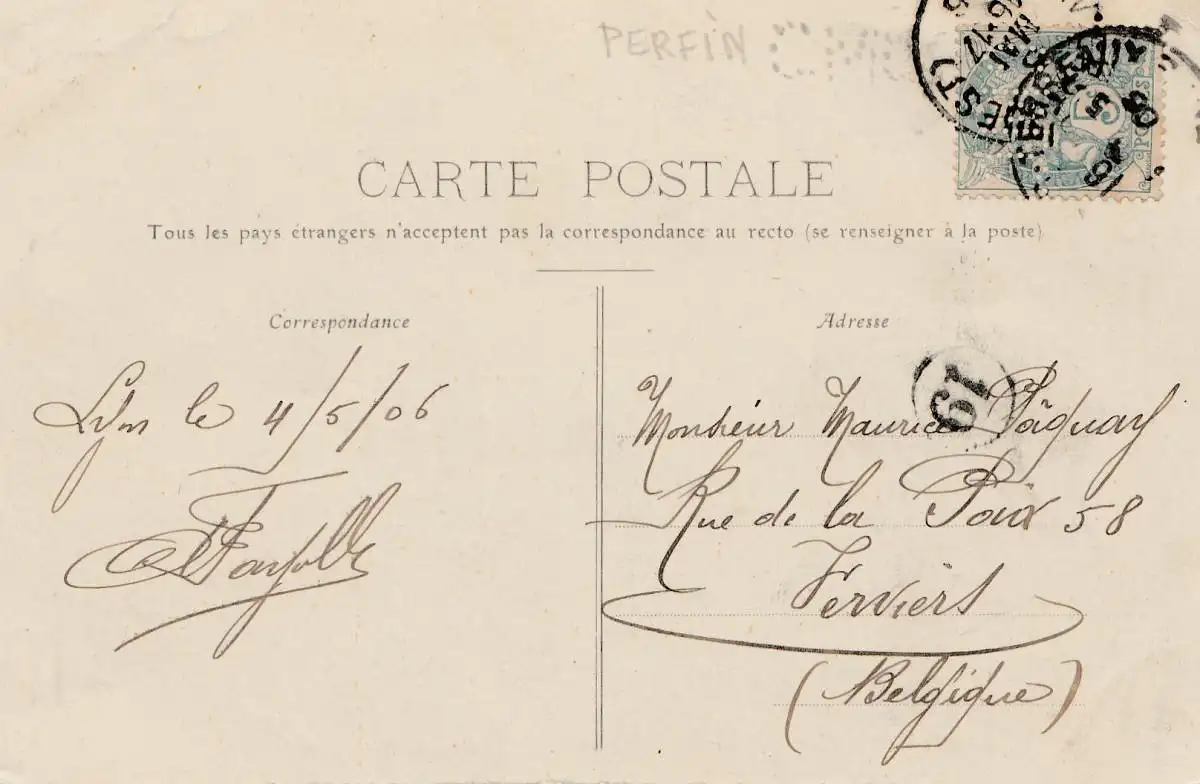 PERFIN
5
CARTE POSTALE
Tous les pays étrangers n'acceptent pas la correspondance au recto (se renseigner à la poste)
Correspondance
Lyon le 4/5/06
Adresse
19
Monsieur Maurice Pâquay
Rue de la Paix 58
Verviers
(Belgique)